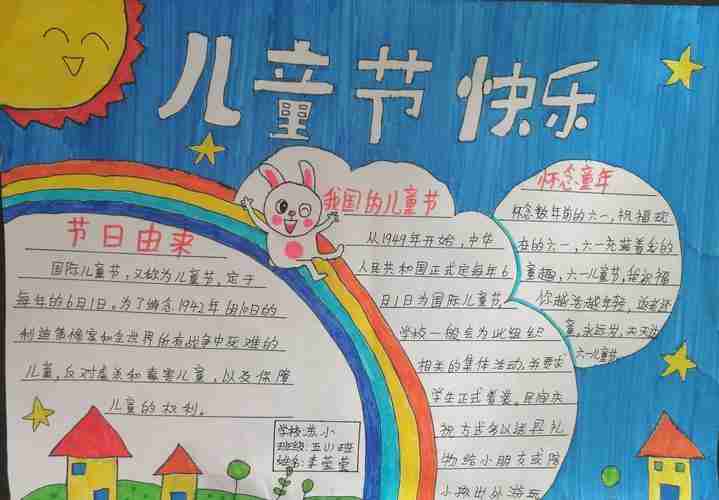 儿童节 快乐
节日由来
国际儿童节，又称为儿童节，定于
每年的6月1日，为了悼念1942年6月10日的
利迪策惨案和全世界所有战争中死难的
儿童，反对虐杀和毒害儿童，以及保障
儿童的权利。
学校：苏小
班级：五(1)班
姓名：李莹莹
我国的儿童节
从1949年开始，中华
人民共和国正式定每年6
月1日为国际儿童节，
学校一般会为此组织
相关的集体活动，并要求
学生正式着装。民间庆
祝方式多以送礼
物给小朋友或陪
小孩出外游玩
怀念童年
怀念数年前的六一，祝福现
在的六一，六一充满着您的
童趣，六一儿童节，我祝福
你越活越年轻，返老还
童，永远岁，天天过
六一儿童节